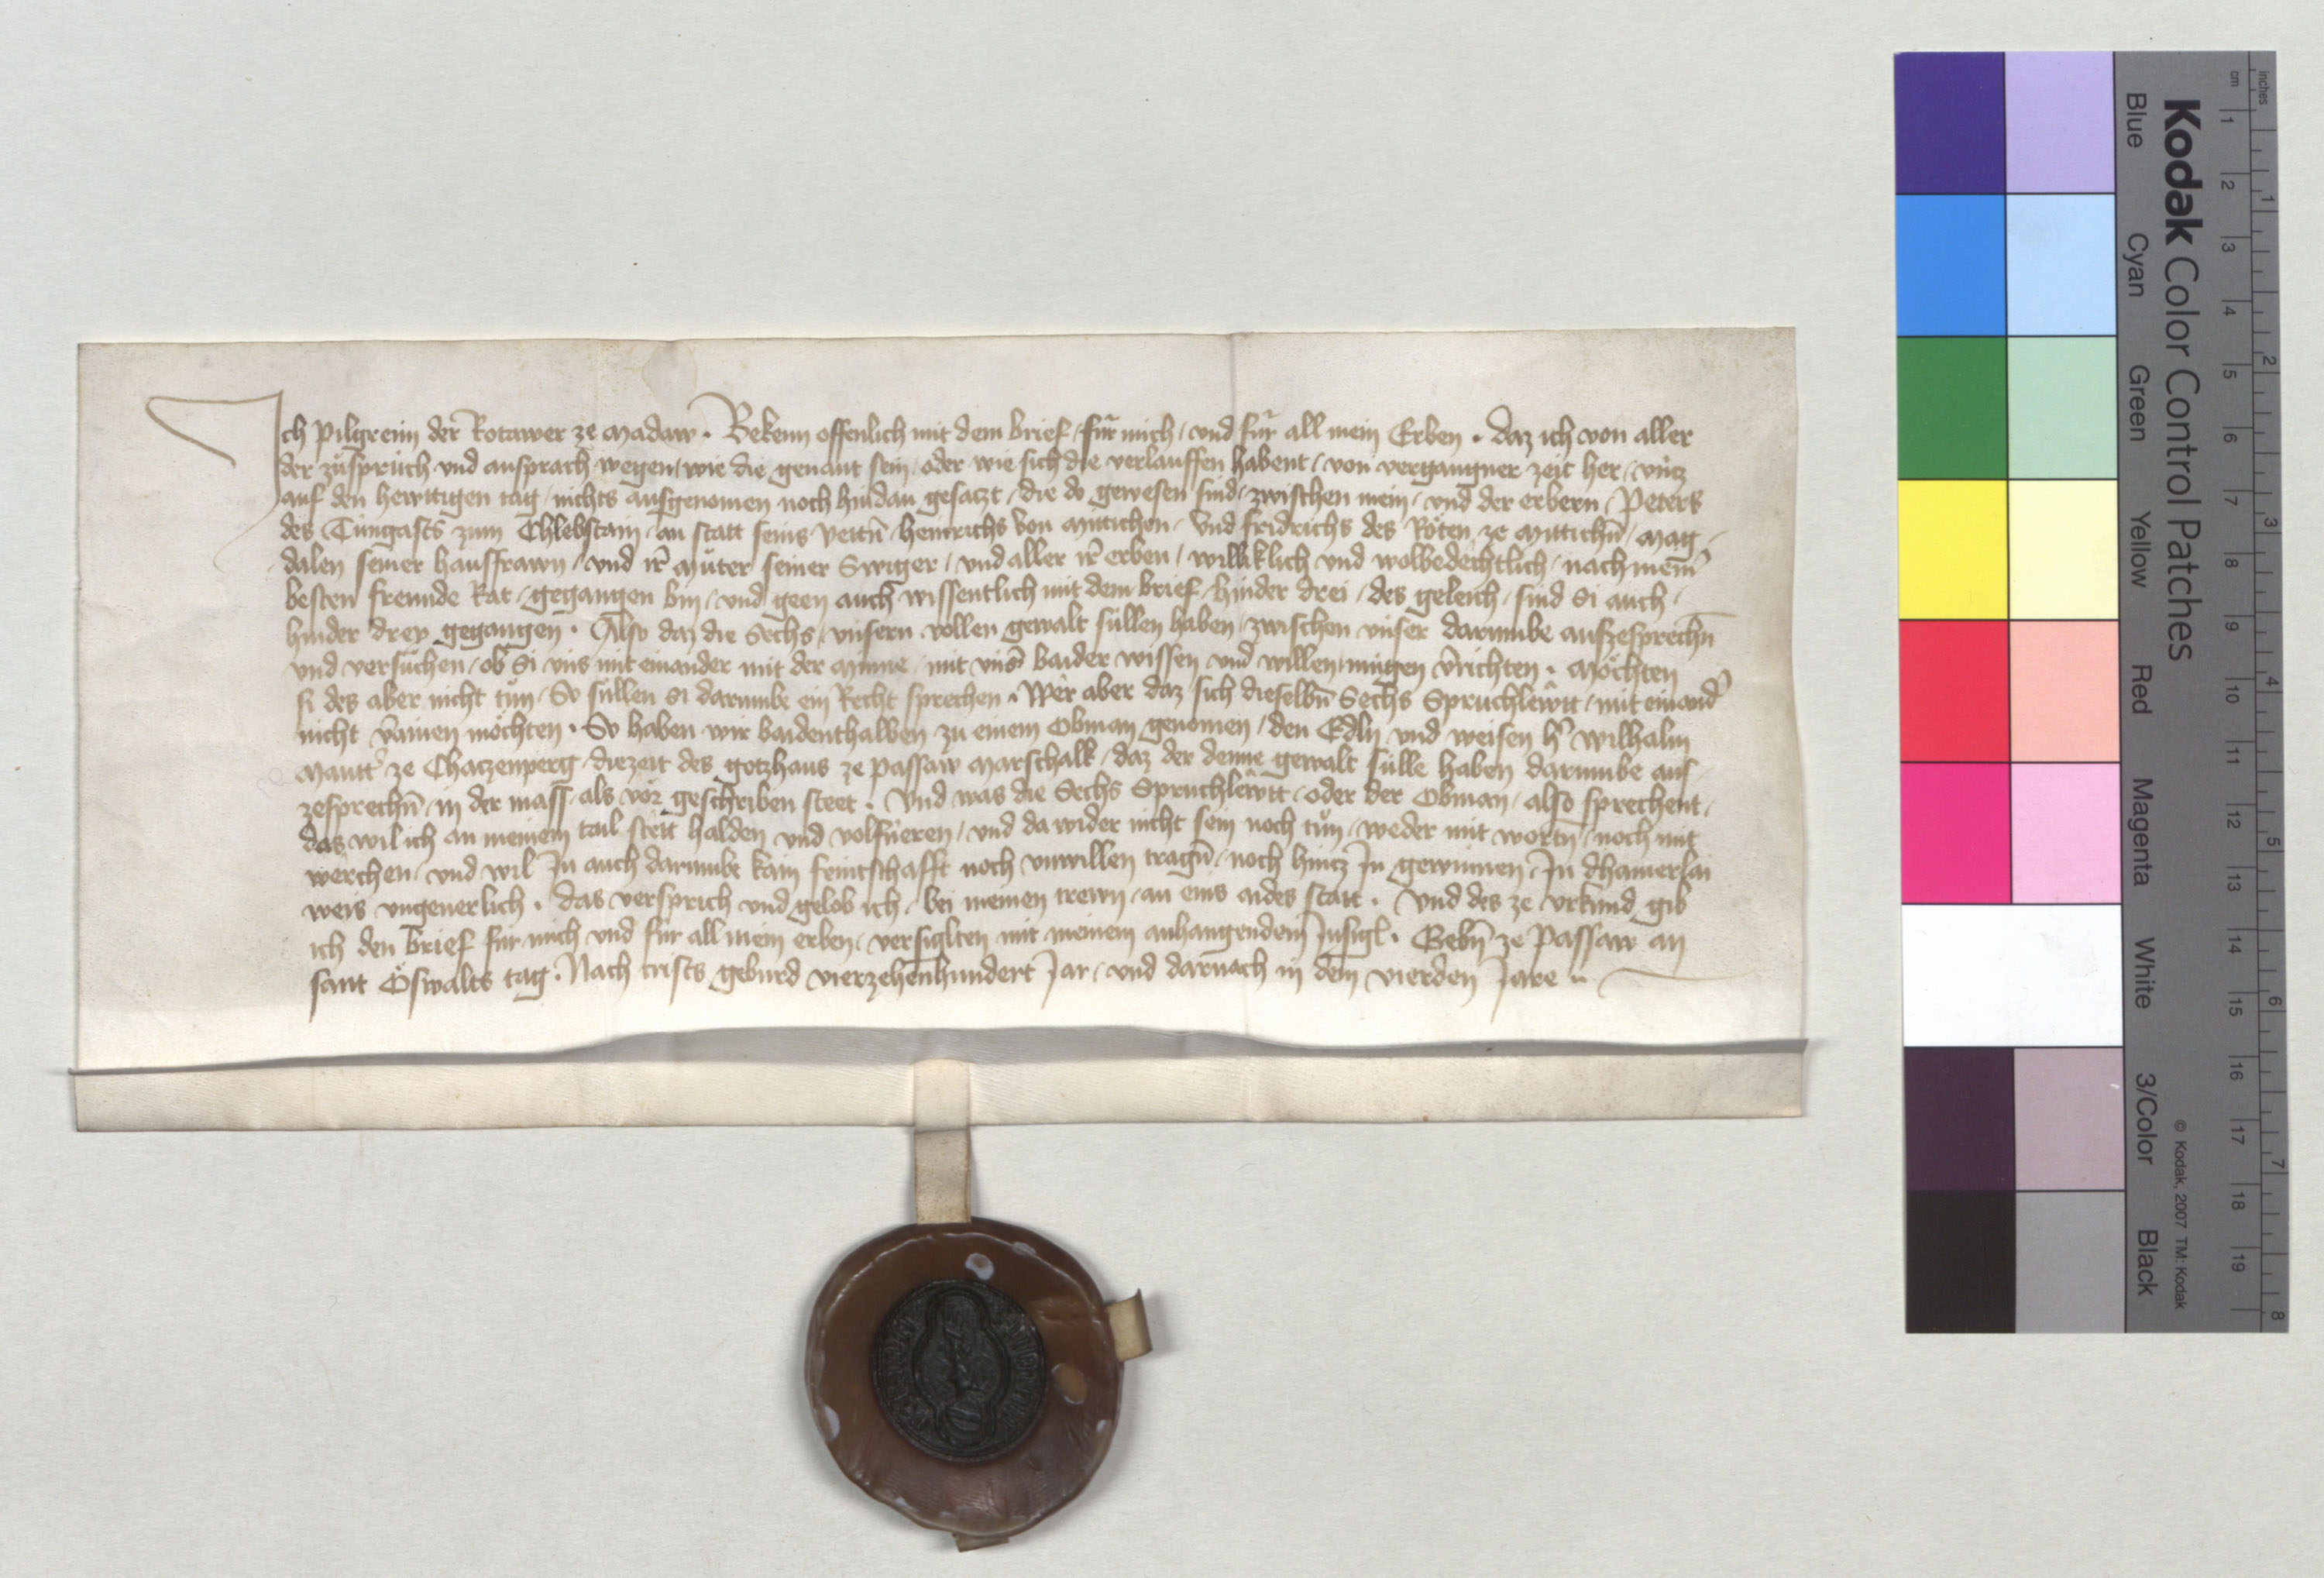 Ich Pilgreim der Rotawer ze Madaw. Bekenn offenlich mit dem brief / für mich / und für all mein Erben. daz ich von aller
der züsprüch und ansprach wegen / wie die genant sein / oder wie sich die verlauffen habent / von vergangner zeit her / üncz
auf den hewttigen tag / nichts ausgenomen noch hindan gesaczt / die do gewesen sind / zwischen mein / und der erbern / Peters
des Tüngasts zum Chlebstain / an statt seins Veitn̄ / heinrichs von Mittichen / Und fridrichs des Röten ze Mittichn̄ / Mag
dalen seiner hausfrawn / und ir̄ Müter seiner Swiger / und aller ir̄ erben / williklich und wolbedechtlich / nach mein̄
besten freunde Rat / gegangen bin / und geen auch wissentlich mit dem brief / hinder drei / des geleich / sind Si auch /
hinder drey gegangen. Also daz die Sechs / unsern vollen gewalt süllen haben / zwischen unser darumbe auszesprechn̄
und versüchen / ob Si uns mit einander mit der Minne / mit uns̄ baider wissen und willen / mügen v̄richten. Möchten
si des aber nicht tün / So süllen Si darumbe ein Recht sprechen. Wer aber daz sich dieselbn̄ Sechs Spruchlewtt / mit einand̄
nicht v̄ainen möchten. So haben wir baidenthalben zu einem Obman genomen / den Edln und weisen h̄ Wilhalm
Mautt̄ ze Chaczenperg / diezeit des gotzhaus ze Passaw Marschalk / daz der denne gewalt sülle haben darumbe aus
zesprechn̄ / in der mass / als vor geschriben steet. Und was die Sechs Spruchlewtt / oder der Obman / also sprechent /
das wil ich an meinem tail stett halden und volfüeren / und da wider nicht sein noch tün / weder mit wortn̄ / noch mit
werchen / und wil In auch darumbe kain feintschafft noch unwillen tragn̄ / noch hincz In gewinnen / In dhainerlai
weis ungeuerlich. das versprich und gelob ich / bei meinen trewn / an eins aides statt. Und des ze urkund gib
ich den brief für mich und für all mein erben / versiglten mit meinem anhangendem Insigl. Gebn̄ ze Passaw an
sant Öswalts tag. Nach crists geburd vierzehenhundert Jar / und darnach in dem vierden Jare
Kodak Color Control Patches
Blue Cyan Green Yellow Red Magenta White 3/Color Black
© Kodak, 2007 TM: Kodak
cm 1 2 3 4 5 6 7 8 9 10 11 12 13 14 15 16 17 18 19
inches 1 2 3 4 5 6 7 8